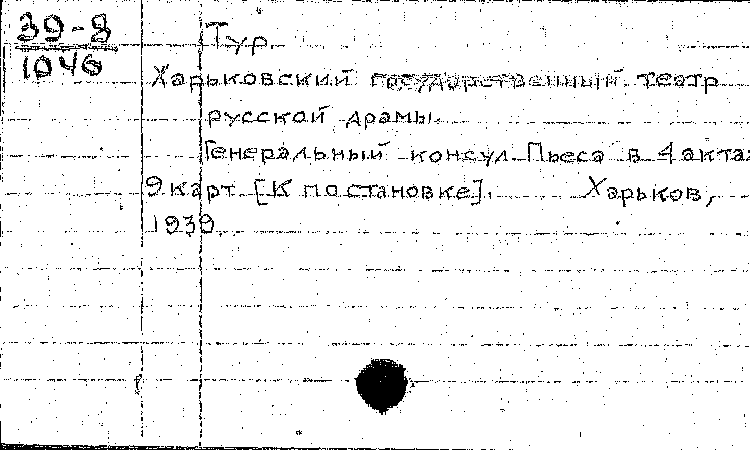 39-8
1046
Тур.
Харьковский государственный театр
русской драмы.
Генеральный консул. Пьеса в 4 акта
9 карт. [К постановке]. Харьков,
1939.